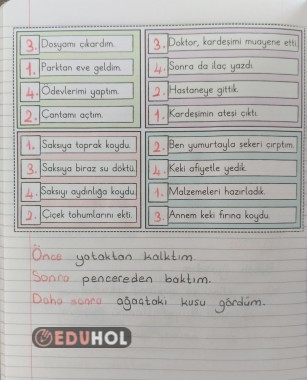 3. Dosyamı çıkardım.
1. Parktan eve geldim.
4. Ödevlerimi yaptım.
2. Çantamı açtım.
3. Doktor, kardeşimi muayene etti.
4. Sonra da ilaç yazdı.
2. Hastaneye gittik.
1. Kardeşimin ateşi çıktı.
1. Saksıya toprak koydu.
3. Saksıya biraz su döktü.
4. Saksıyı aydınlığa koydu.
2. Çiçek tohumlarını ekti.
2. Ben yumurtayla şekeri çırptım.
4. Keki afiyetle yedik.
1. Malzemeleri hazırladık.
3. Annem keki fırına koydu.
Önce yataktan kalktım.
Sonra pencereden baktım.
Daha sonra ağaçtaki kuşu gördüm.
EDUHOL